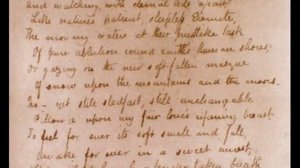 and watching, with eternal lids apart
Like nature's patient, sleepless Eremite,
The morning waters at their priestlike task
Of pure ablution round earth's human shores;
Or gazing on the new soft fallen masque
Of snow upon the mountains and the moors.
No – yet still stedfast, still unchangeable
Pillow'd upon my fair love's ripening breast
To feel for ever its soft swell and fall
Awake for ever in a sweet unrest
taken breath